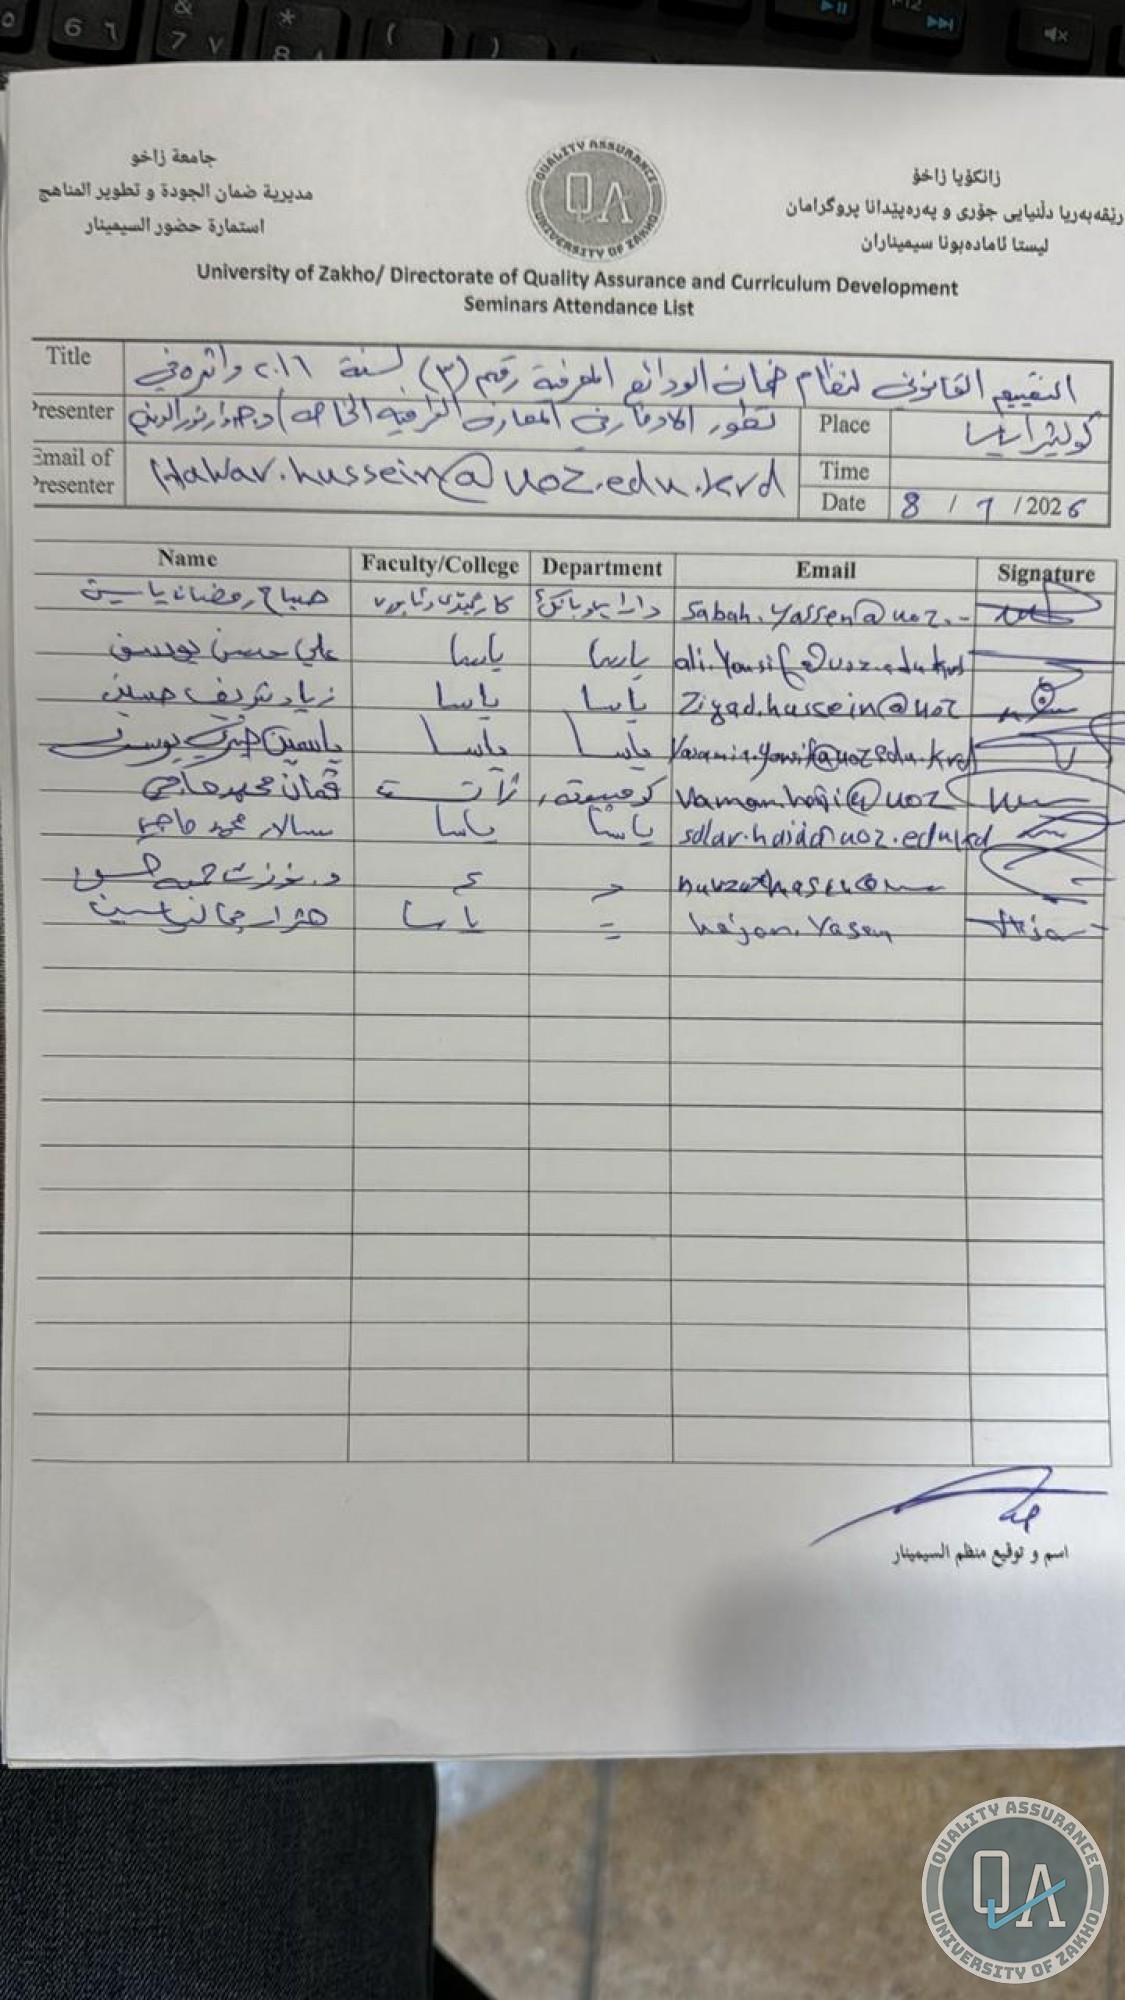 جامعة زاخو
مديرية ضمان الجودة و تطوير المناهج
استمارة حضور السيمينار
QUALITY ASSURANCE
QA
UNIVERSITY OF ZAKHO
زانکۆیا زاخۆ
رێڤەبەریا دڵنیایی جۆری و پەرەپێدانا پروگرامان
لیستا ئامادەبونا سیمیناران
University of Zakho/ Directorate of Quality Assurance and Curriculum Development
Seminars Attendance List
Title التقييم القانوني لنظام ضمان الودائع المصرفية رقم (٣) لسنة ٢٠١٦ واثره في
Presenter تطور الادخار في المصارف العراقية الخاصة
Place
Email of Presenter Hawar.hussein@uoz.edu.krd
Time
Date 8 / 7 / 2026
Name Faculty/College Department Email Signature
صباح رمضان ياسين sabah.yassen@uoz.-
علي حسن يوسف یاسا یاسا ali.Yousif@uoz.edu.krd
زياد شريف حسين یاسا یاسا Ziyad.hussein@uoz
یاسا یاسا
ڤمان محمد حاجي Vaman.haji@uoz
سالار محمد حاجي یاسا یاسا salar.haji@uoz.edu.krd
یاسا hejan.Yasen
اسم و توقيع منظم السيمينار
QUALITY ASSURANCE
QA
UNIVERSITY OF ZAKHO